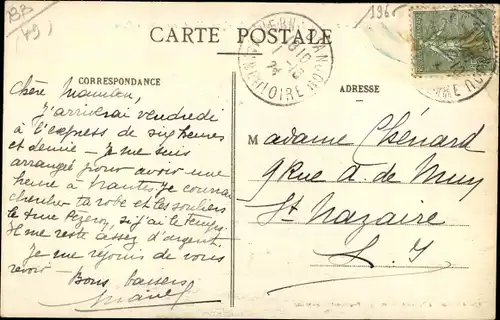 BB
(49)
1965
CARTE POSTALE
CORRESPONDANCE
ADRESSE
Chère Maman,
J'arriverai vendredi
à l'express de six heures
et demie – Je me suis
arrangée pour avoir une
heure à Nantes. Je courrai
chercher ta robe et les souliers
de Mme Pezeron, si j'ai le temps.
Il me reste assez d'argent.
Je me réjouis de vous
revoir –
Bons baisers
M Madame Chénard
9 Rue A. de Mun
St Nazaire
L. I
LOIRE